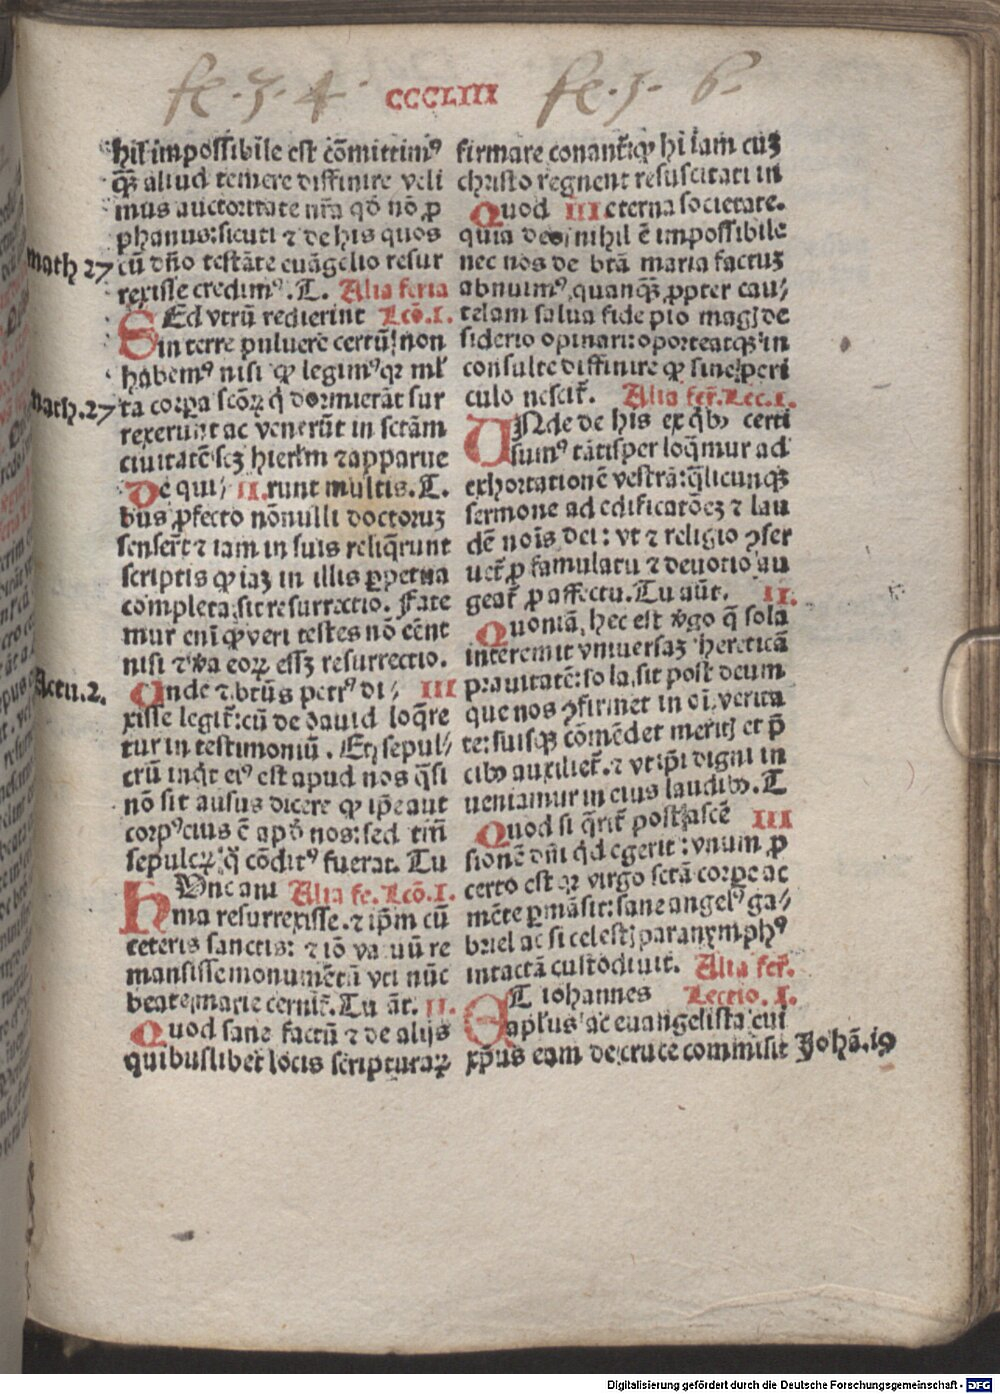 fe. 3. 4. CCCLIII fe. 5. 6.
hil impossibile est cōmittimꝰ
qꝫ aliud temere diffinire veli
mus auctoritate nr̄a qd̄ nō ꝓ
phanus: sicuti ⁊ de his quos
math 27 cū dn̄o testāte euāgelio resur
rexisse credimꝰ. T. Alia feria
SEd vtrū redierint Lcō. I.
in terre puluerē certū non
habemꝰ nisi ꝙ legimꝰ qꝛ ml̄
Math. 27 ta corꝑa scōꝝ q̇ dormierāt sur
rexerunt ac venerūt in sctām
ciuitatē scꝫ hierl̄m ⁊ apparue
De qui⸗ II. runt multis. T.
bus ꝓfecto nōnulli doctoruꝫ
senser̄t ⁊ iam in suis reliq̄runt
scriptis ꝙ iaꝫ in illis ꝑpetua
completa sit resurrectio. Fate
mur eni ꝙ veri testes nō eēnt
nisi ⁊ v̄a eoꝝ essꝫ resurrectio.
Actu. 2. Unde ⁊ btūs petrꝰ di⸗ III
xisse legit̄: cū de dauid loq̄re
tur in testimoniū. Et sepul⸗
crū inq̇t eiꝰ est apud nos q̄si
nō sit ausus dicere ꝙ ip̄e aut
corpꝰ eius ē apd̄ nos: sed tm̄
sepulcꝝ q̇ cōditꝰ fuerat. Tu
HUnc ani Alia fe. Lcō. I.
ma resurrexisse. ⁊ ip̄m cū
ceteris sanctis: ⁊ iō va uū re
mansisse monumētū vti nūc
beate marie cernit̄. Tu āt. II.
Quod sane factū ⁊ de alijs
quibuslibet locis scripturaꝝ
firmare conant̄: ꝙ hi iam cuꝫ
christo regnent resuscitati in
Quod III eterna societate.
quia deo nihil ē impossibile
nec nos de btā maria factuꝫ
abnuimꝰ quanqꝫ ꝓpter cau⸗
telam salua fide pio magj de
siderio opinari: oporteatqꝫ in
consulte diffinire ꝙ sine peri
culo nescit̄. Alia fer̄. Lec. I.
UNde de his ex qb̄ꝫ certi
sumꝰ tātisper loq̄mur ad
exhortationē vestrā: q̄licunqꝫ
sermone ad edificatōeꝫ ⁊ lau
dē nois dei: vt ⁊ religio ꝯser
uet̄ ꝓ famulatu ⁊ deuotio au
geat̄ ꝓ affectu. Tu aūt. II.
Quoniā hec est v̇go q̄ sola
interemit vniuersaꝫ hereticā
prauitatē: sola sit post deum
que nos ꝯfirmet in oi verita
te: suisqꝫ cōmēdet meritj et p̄
cibꝫ auxiliet̄. ⁊ vt ip̄i digni in
ueniamur in eius laudibꝫ. T
Quod si q̄rit̄ post ascē III
sionē dn̄i q̇d egerit: vnum ꝓ
certo est qꝛ virgo sctā corꝑe ac
mēte ꝑmāsit: sane angelꝰ ga⸗
briel ac si celestj paranymphꝰ
intactā custodiuit. Alia fer̄.
ET iohannes Lectio. I.
apl̄us ac euangelista cui
xp̄us eam de cruce commisit Johā. 19
Digitalisierung gefördert durch die Deutsche Forschungsgemeinschaft - DFG